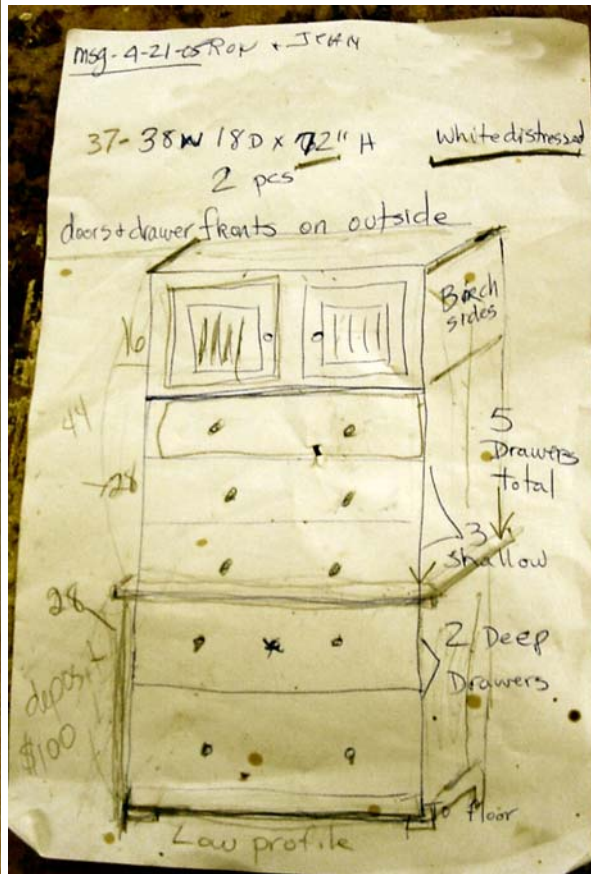 msg-4-21-05 Ron + Jean
37-38W 18D x 72" H
2 pcs
white distressed
doors + drawer fronts on outside
Birch
sides
16
44
28
5
Drawers
total
3
shallow
28
2 Deep
Drawers
deposit
$100
To floor
Low profile